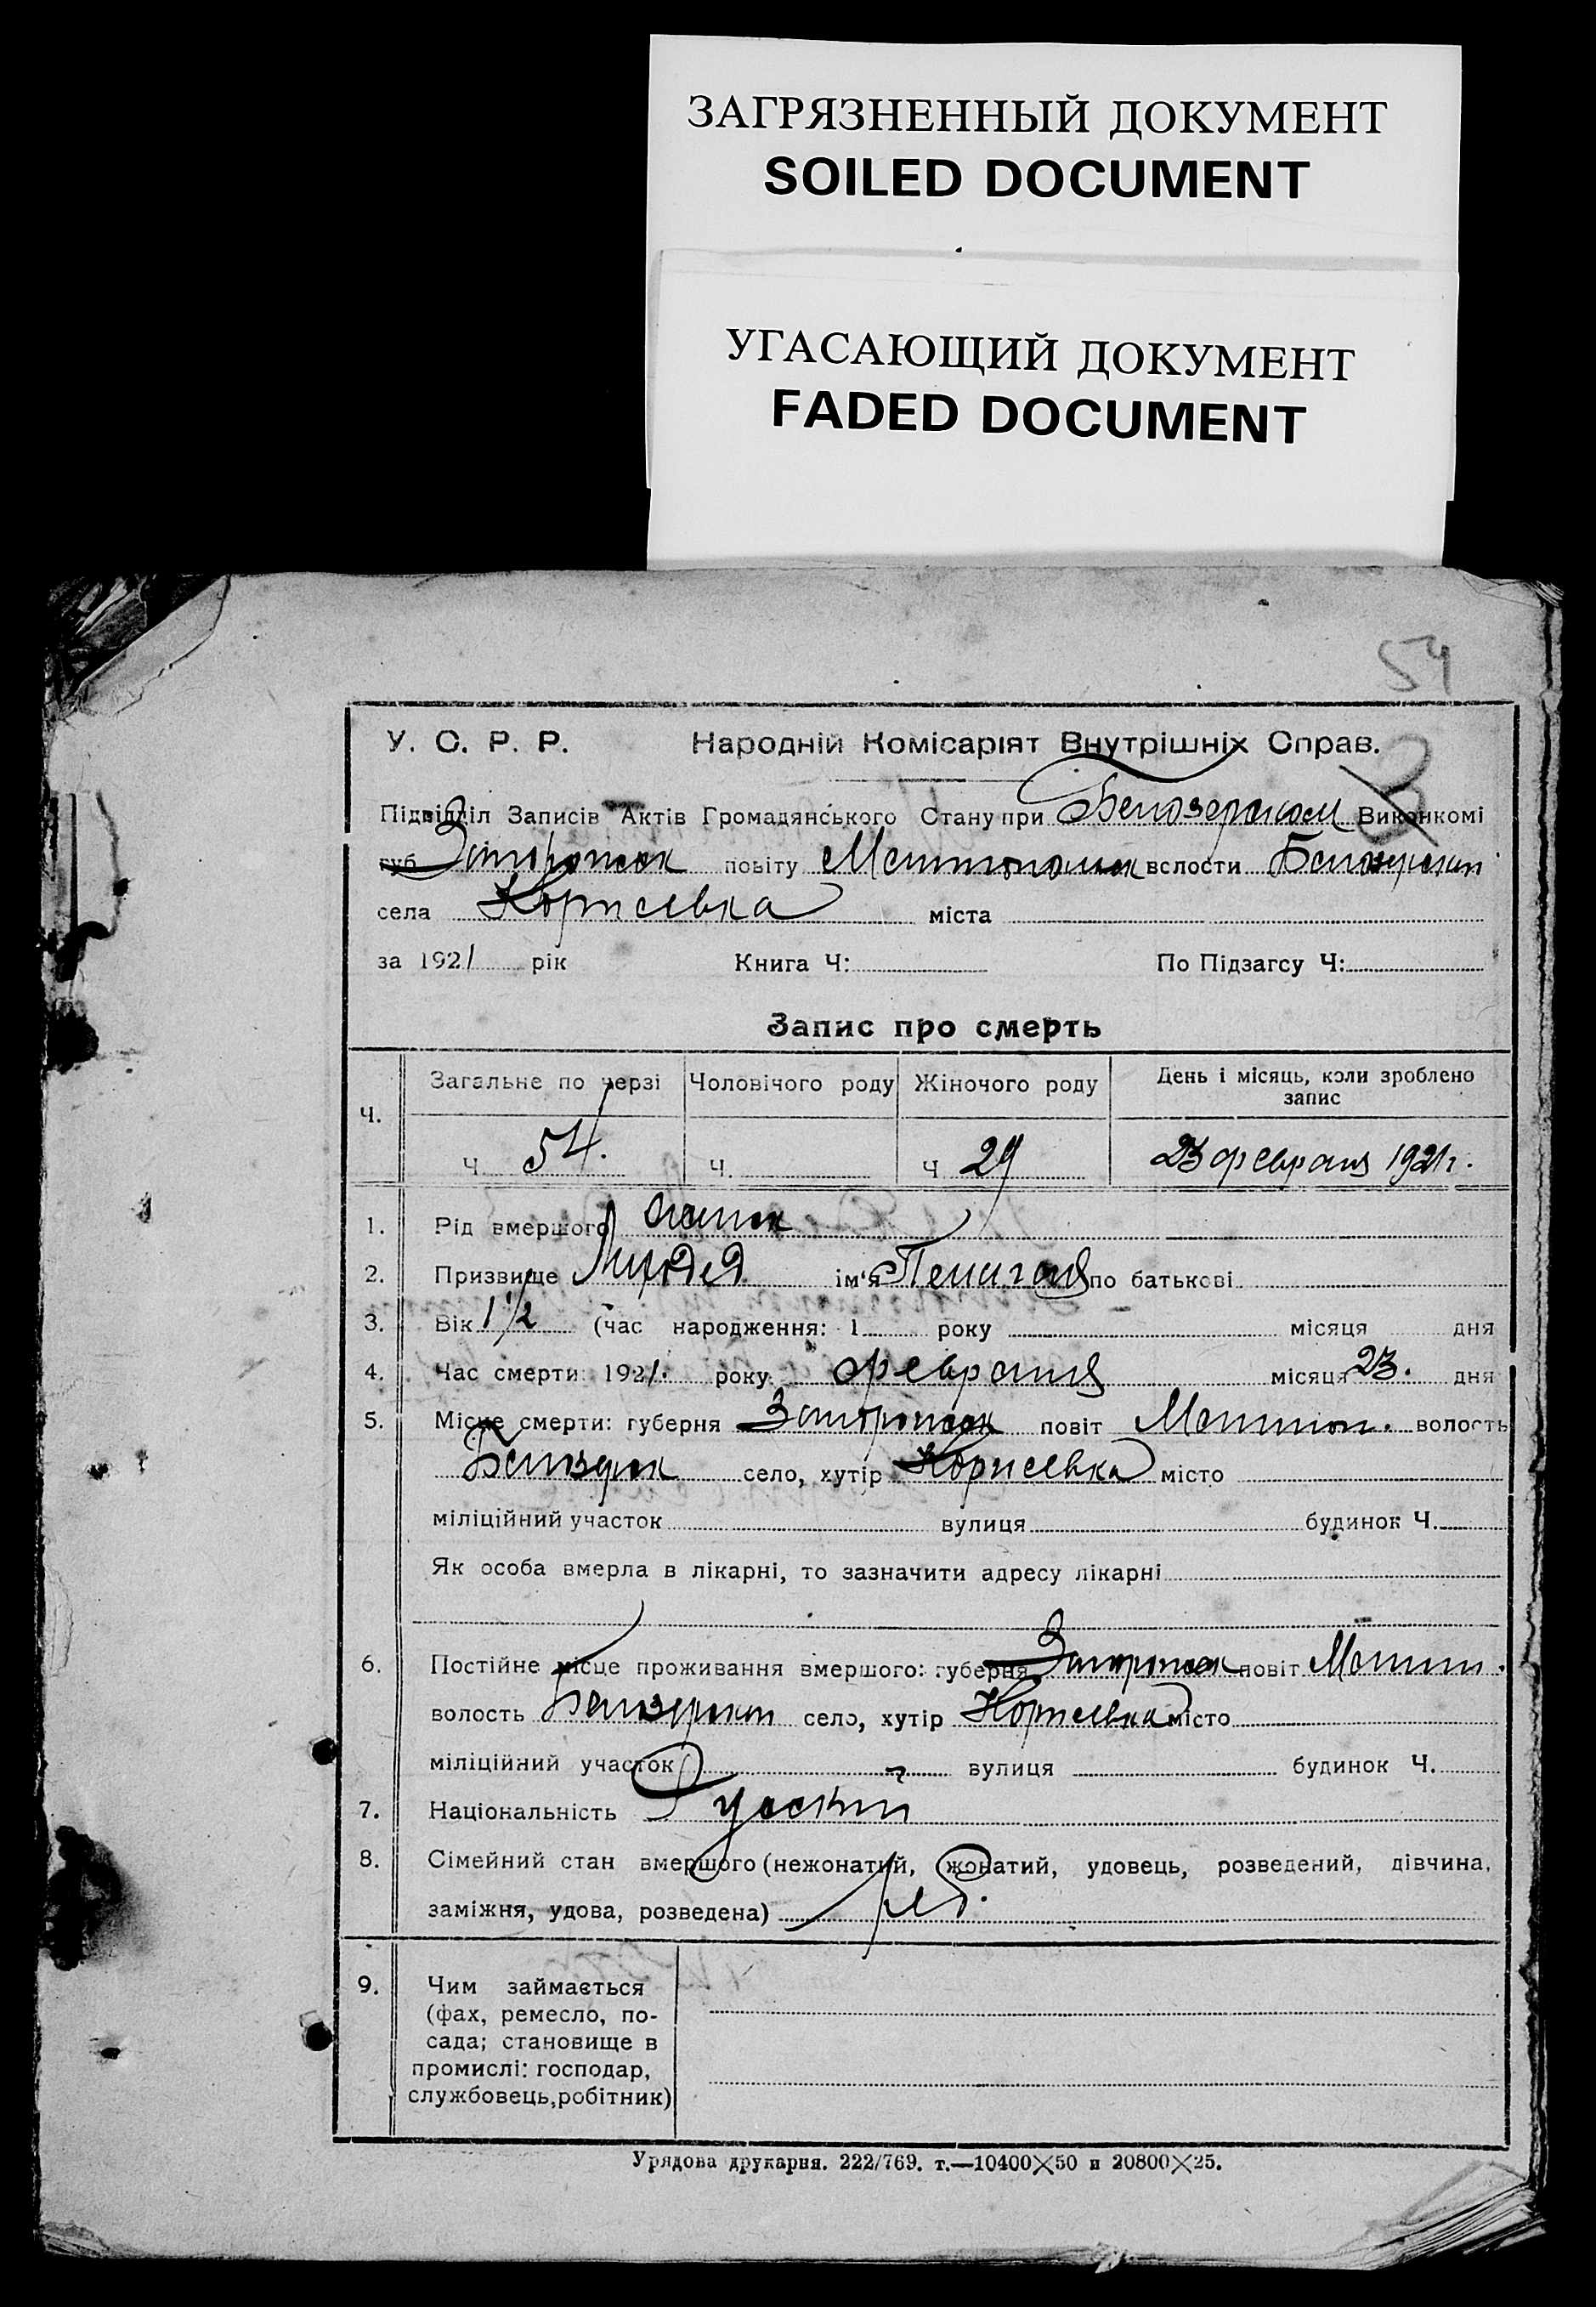 ЗАГРЯЗНЕННЫЙ ДОКУМЕНТ
SOILED DOCUMENT
УГАСАЮЩИЙ ДОКУМЕНТ
FADED DOCUMENT
54
У. С. Р. Р. Народній Комісаріят Внутрішніх Справ.
3
Підвідділ Записів Актів Громадянського Стану при Белозерском Виконкомі
губ Запорожск повіту Мелитопольск вслости Белозерской
села Корнеевка міста
за 1921 рік Книга Ч: По Підзагсу Ч:
Запис про смерть
Ч. Загальне по черзі Чоловічого роду Жіночого роду День і місяць, коли зроблено
запис
Ч 54. Ч. Ч 29 23 февраля 1921 г.
1. Рід вмершого
2. Призвище ім'я Пелагея по батькові
3. Вік 1 1/2 (час народження: 1 року місяця дня
4. Час смерти: 1921. року. февраля місяця 23. дня
5. Місце смерти: губерня Запорожск повіт Мелитоп. волость
Белозерск село, хутір Корнеевка місто
міліційний участок вулиця будинок Ч.
Як особа вмерла в лікарні, то зазначити адресу лікарні
6. Постійне місце проживання вмершого: губерня Запорожск повіт Мелитоп.
волость Белозерской село, хутір Корнеевка місто
міліційний участок вулиця будинок Ч.
7. Національність Руский
8. Сімейний стан вмершого (нежонатий, жонатий, удовець, розведений, дівчина,
заміжня, удова, розведена) реб.
9. Чим займається
(фах, ремесло, по-
сада; становище в
промислі: господар,
службовець, робітник)
Урядова друкарня. 222/769. т.—10400×50 и 20800×25.